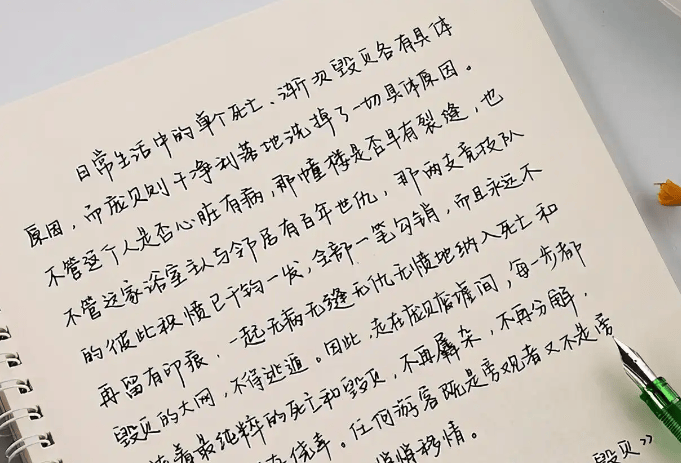 日常生活中的单个死亡、渐次毁灭各有具体
原因，而庞贝则干净利落地洗掉了一切具体原因。
不管这个人是否心脏有病，那幢楼是否早有裂缝，也
不管这家浴室主人与邻居有百年世仇，那两支竞技队
的彼此积愤已千钧一发，全部一笔勾销，而且永远不
再留有印痕，一起无病无缝无仇无愤地纳入死亡和
毁灭的大网，不得逃遁。因此，走在庞贝废墟间，每一步都
着最纯粹的死亡和毁灭，不再羼杂，不再分解，
侥幸。任何游客既是旁观者又不是旁
悄悄移情。
毁灭》